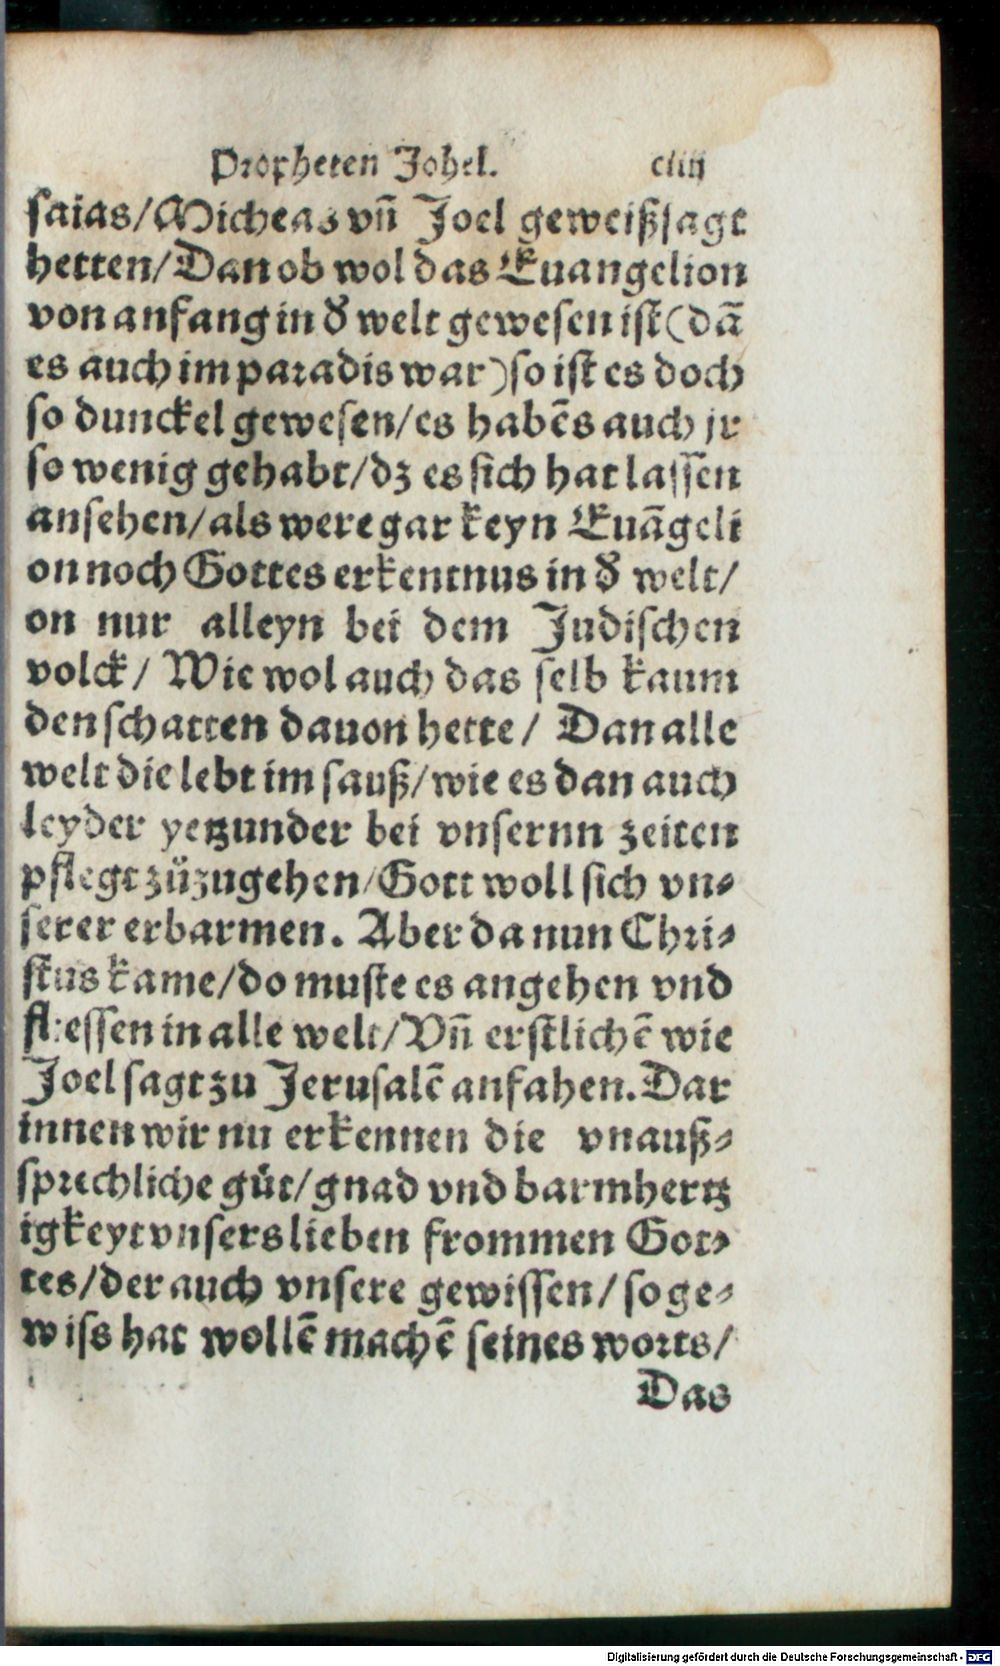 Propheten Johel. cliij
saias/Micheas vñ Joel geweißsagt
hetten/Dan ob wol das Euangelion
von anfang in d̕ welt gewesen ist(dā
es auch im paradis war)so ist es doch
so dunckel gewesen/es habēs auch jr
so wenig gehabt/dz es sich hat lassen
ansehen/als were gar keyn Euāgeli
on noch Gottes erkentnus in d̕ welt/
on nur alleyn bei dem Judischen
volck/ Wie wol auch das selb kaum
den schatten dauon hette/ Dan alle
welt die lebt im sauß/wie es dan auch
leyder yetzunder bei vnsernn zeiten
pflegt zůzugehen/Gott woll sich vn⸗
serer erbarmen. Aber da nun Chri⸗
stus kame/do muste es angehen vnd
fliessen in alle welt/Vñ erstlichē wie
Joel sagt zu Jerusalē anfahen.Dar
innen wir nu erkennen die vnauß⸗
sprechliche gůt/gnad vnd barmhertz
igkeyt vnsers lieben frommen Got⸗
tes/der auch vnsere gewissen/so ge⸗
wiss hat wollē machē seines worts/
Das
Digitalisierung gefördert durch die Deutsche Forschungsgemeinschaft - DFG